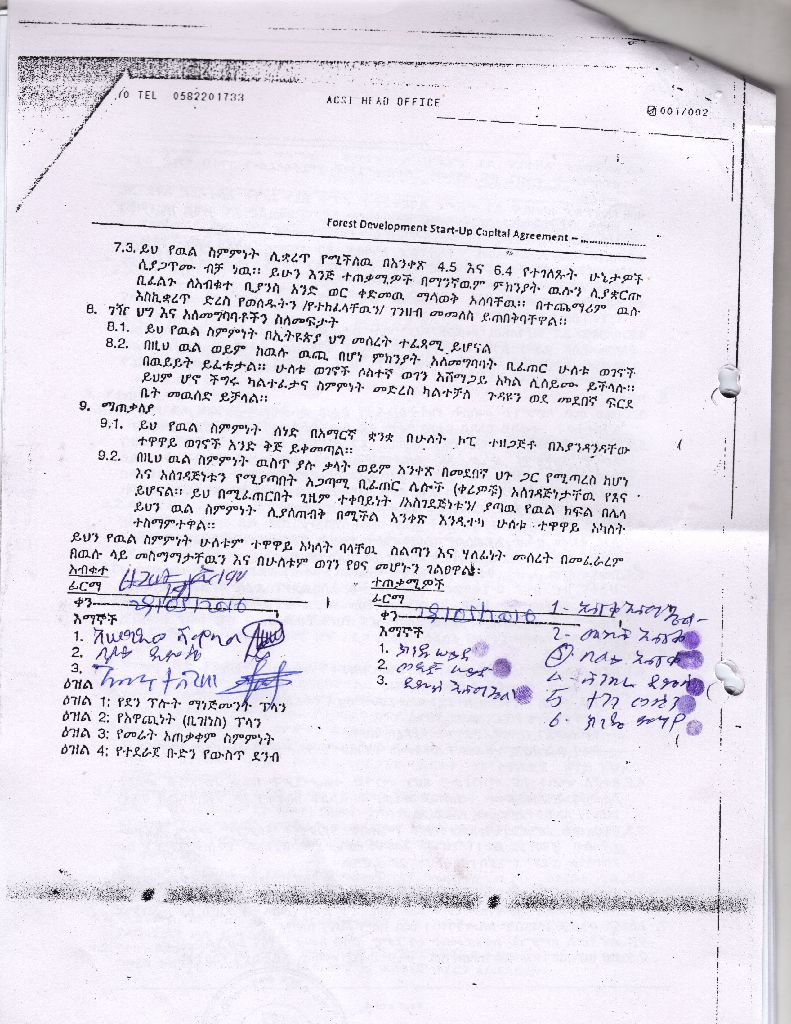 TO TEL 0582201733 ACSI HEAD OFFICE 001/002
Forest Development Start-Up Capital Agreement –
7.3. ይህ የዉል ስምምነት ሊቋረጥ የሚችለዉ በአንቀጽ 4.5 እና 6.4 የተገለጹት ሁኔታዎች
ሲያጋጥሙ ብቻ ነዉ፡፡ ይሁን እንጅ ተጠቃሚዎች በማንኛዉም ምክንያት ዉሉን ሊያቋርጡ
ቢፈልጉ ለአብቁተ ቢያንስ አንድ ወር ቀድመዉ ማሳወቅ አለባቸዉ፡፡ በተጨማሪም ዉሉ
እስኪቋረጥ ድረስ የወሰዱትን /የተከፈላቸዉን/ ገንዘብ መመለስ ይጠበቅባቸዋል፡፡
8. ገዥ ህግ እና አለመግባባቶችን ስለመፍታት
8.1. ይህ የዉል ስምምነት በኢትዮጵያ ህግ መሰረት ተፈጻሚ ይሆናል
8.2. በዚህ ዉል ወይም ከዉሉ ዉጪ በሆነ ምክንያት አለመግባባት ቢፈጠር ሁለቱ ወገኖች
በዉይይት ይፈቱታል፡፡ ሁለቱ ወገኖች ሶስተኛ ወገን አሸማጋይ አካል ሊሰይሙ ይችላሉ፡፡
ይህም ሆኖ ችግሩ ካልተፈታና ስምምነት መድረስ ካልተቻለ ጉዳዩን ወደ መደበኛ ፍርድ
ቤት መዉሰድ ይቻላል፡፡
9. ማጠቃለያ
9.1. ይህ የዉል ስምምነት ሰነድ በአማርኛ ቋንቋ በሁለት ኮፒ ተዘጋጅቶ በእያንዳንዳቸው
ተዋዋይ ወገኖች አንድ ቅጅ ይቀመጣል፡፡
9.2. በዚህ ዉል ስምምነት ዉስጥ ያሉ ቃላት ወይም አንቀጽ በመደበኛ ህጉ ጋር የሚጣረስ ከሆነ
እና አስገዳጅነቱን የሚያጣበት አጋጣሚ ቢፈጠር ሌሎች (ቀሪዎቹ) አስገዳጅነታቸዉ የጸና
ይሆናል፡፡ ይህ በሚፈጠርበት ጊዜም ተቀባይነት /አስገዳጅነቱን/ ያጣዉ የዉል ክፍል በሌላ
ይህን ዉል ስምምነት ሊያስጠብቅ በሚችል አንቀጽ እንዲተካ ሁለቱ ተዋዋይ አካላት
ተስማምተዋል፡፡
ይህን የዉል ስምምነት ሁለቱም ተዋዋይ አካላት ባላቸዉ ስልጣን እና ሃላፊነት መሰረት በመፈራረም
በዉሉ ላይ መስማማታቸዉን እና በሁለቱም ወገን የፀና መሆኑን ገልፀዋል፡
አብቁተ ተጠቃሚዎች
ፊርማ ፊርማ
ቀን 29/05/2016 ቀን 29/05/2016
እማኞች እማኞች
1. 1.
2. 2.
3. 3.
ዕዝል
ዕዝል 1: የደን ፕሎት ማኔጅመንት ፕላን
ዕዝል 2: የአዋጪነት (ቢዝነስ) ፕላን
ዕዝል 3: የመሬት አጠቃቀም ስምምነት
ዕዝል 4: የተደራጀ ቡድን የውስጥ ደንብ